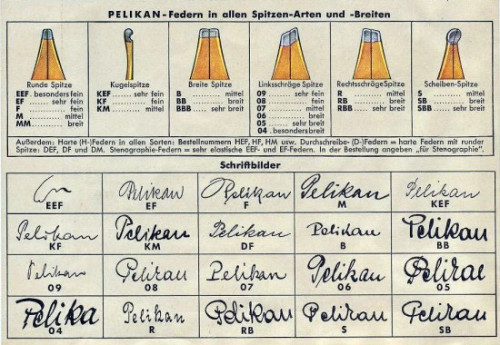 PELIKAN-Federn in allen Spitzen-Arten und -Breiten
Runde Spitze
EEF besonders fein
EF ........ sehr fein
F ................ fein
M ............. mittel
MM ........... breit
Kugelspitze
KEF .... sehr fein
KF ............ fein
KM ......... mittel
Breite Spitze
B ............ mittel
BB ........... breit
BBB sehr breit
Linksschräge Spitze
09 ...... sehr fein
08 .............. fein
07 ........... mittel
06 ............ breit
05 ..... sehr breit
04 .besond.breit
Rechtsschräge Spitze
R ............ mittel
RB ........... breit
RBB .. sehr breit
Scheiben-Spitze
S ............ mittel
SB ........... breit
SBB .. sehr breit
Außerdem: Harte (H-)Federn in allen Sorten: Bestellnummern HEF, HF, HM usw. Durchschreibe- (D-)Federn = harte Federn mit runder
Spitze: DEF, DF und DM. Stenographie-Federn = sehr elastische EEF- und EF-Federn. In der Bestellung angeben „für Stenographie".
Schriftbilder
Pelikan Pelikan Pelikan Pelikan
EEF EF F M KEF
Pelikan Pelikan Pelikan Pelikan Pelikan
KF KM DF B BB
Pelikan Pelikan Pelikan Pelikan Pelikan
09 08 07 06 05
Pelika Pelikan Pelikan Pelikan Pelikan
04 R RB S SB